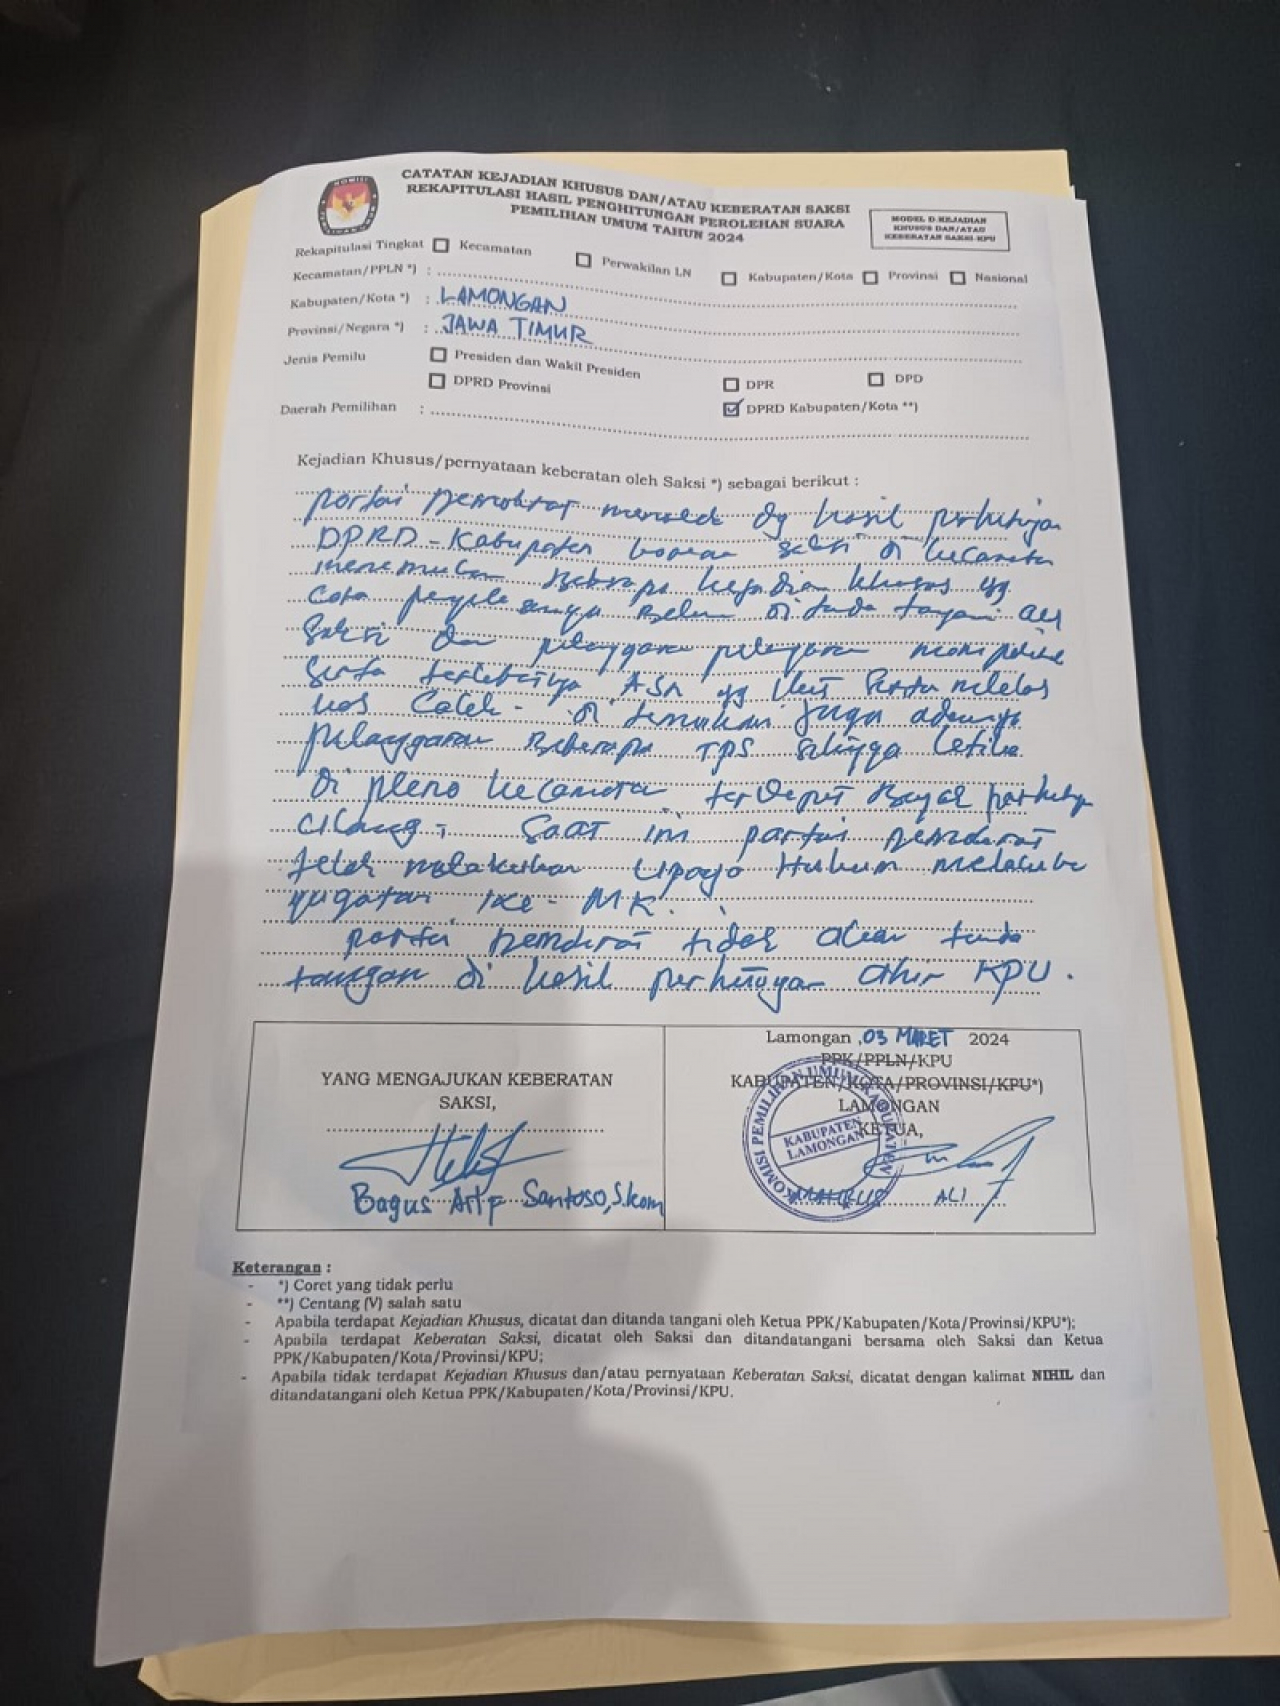 CATATAN KEJADIAN KHUSUS DAN/ATAU KEBERATAN SAKSI
REKAPITULASI HASIL PENGHITUNGAN PEROLEHAN SUARA
PEMILIHAN UMUM TAHUN 2024
MODEL D.KEJADIAN
KHUSUS DAN/ATAU
KEBERATAN SAKSI-KPU
Rekapitulasi Tingkat Kecamatan Perwakilan LN Kabupaten/Kota Provinsi Nasional
Kecamatan/PPLN *) :
Kabupaten/Kota *) : LAMONGAN
Provinsi/Negara *) : JAWA TIMUR
Jenis Pemilu Presiden dan Wakil Presiden DPR DPD
DPRD Provinsi DPRD Kabupaten/Kota **)
Daerah Pemilihan :
Kejadian Khusus/pernyataan keberatan oleh Saksi *) sebagai berikut :
partai Demokrat hasil
DPRD - Kabupaten saksi di kecamatan
menemukan kejadian khusus yg
cara Belum di tanda tangani
Saksi dan
serta ASN yg
di temukan juga adanya
pelanggaran Beberapa TPS sehingga ketika
Di pleno kecamatan terdapat
saat ini partai Demokrat
telah melakukan Upaya Hukum
gugatan ke - MK.
partai Demokrat tidak akan tanda
tangan di hasil akhir KPU.
YANG MENGAJUKAN KEBERATAN
SAKSI,
Bagus Arif Santoso, S.kom
Lamongan, 03 MARET 2024
PPK/PPLN/KPU
KABUPATEN/KOTA/PROVINSI/KPU*)
LAMONGAN
KETUA,
KOMISI PEMILIHAN UMUM KABUPATEN
KABUPATEN
LAMONGAN
MAHRUS ALI
Keterangan :
- *) Coret yang tidak perlu
- **) Centang (V) salah satu
- Apabila terdapat Kejadian Khusus, dicatat dan ditanda tangani oleh Ketua PPK/Kabupaten/Kota/Provinsi/KPU*);
- Apabila terdapat Keberatan Saksi, dicatat oleh Saksi dan ditandatangani bersama oleh Saksi dan Ketua
PPK/Kabupaten/Kota/Provinsi/KPU;
- Apabila tidak terdapat Kejadian Khusus dan/atau pernyataan Keberatan Saksi, dicatat dengan kalimat NIHIL dan
ditandatangani oleh Ketua PPK/Kabupaten/Kota/Provinsi/KPU.